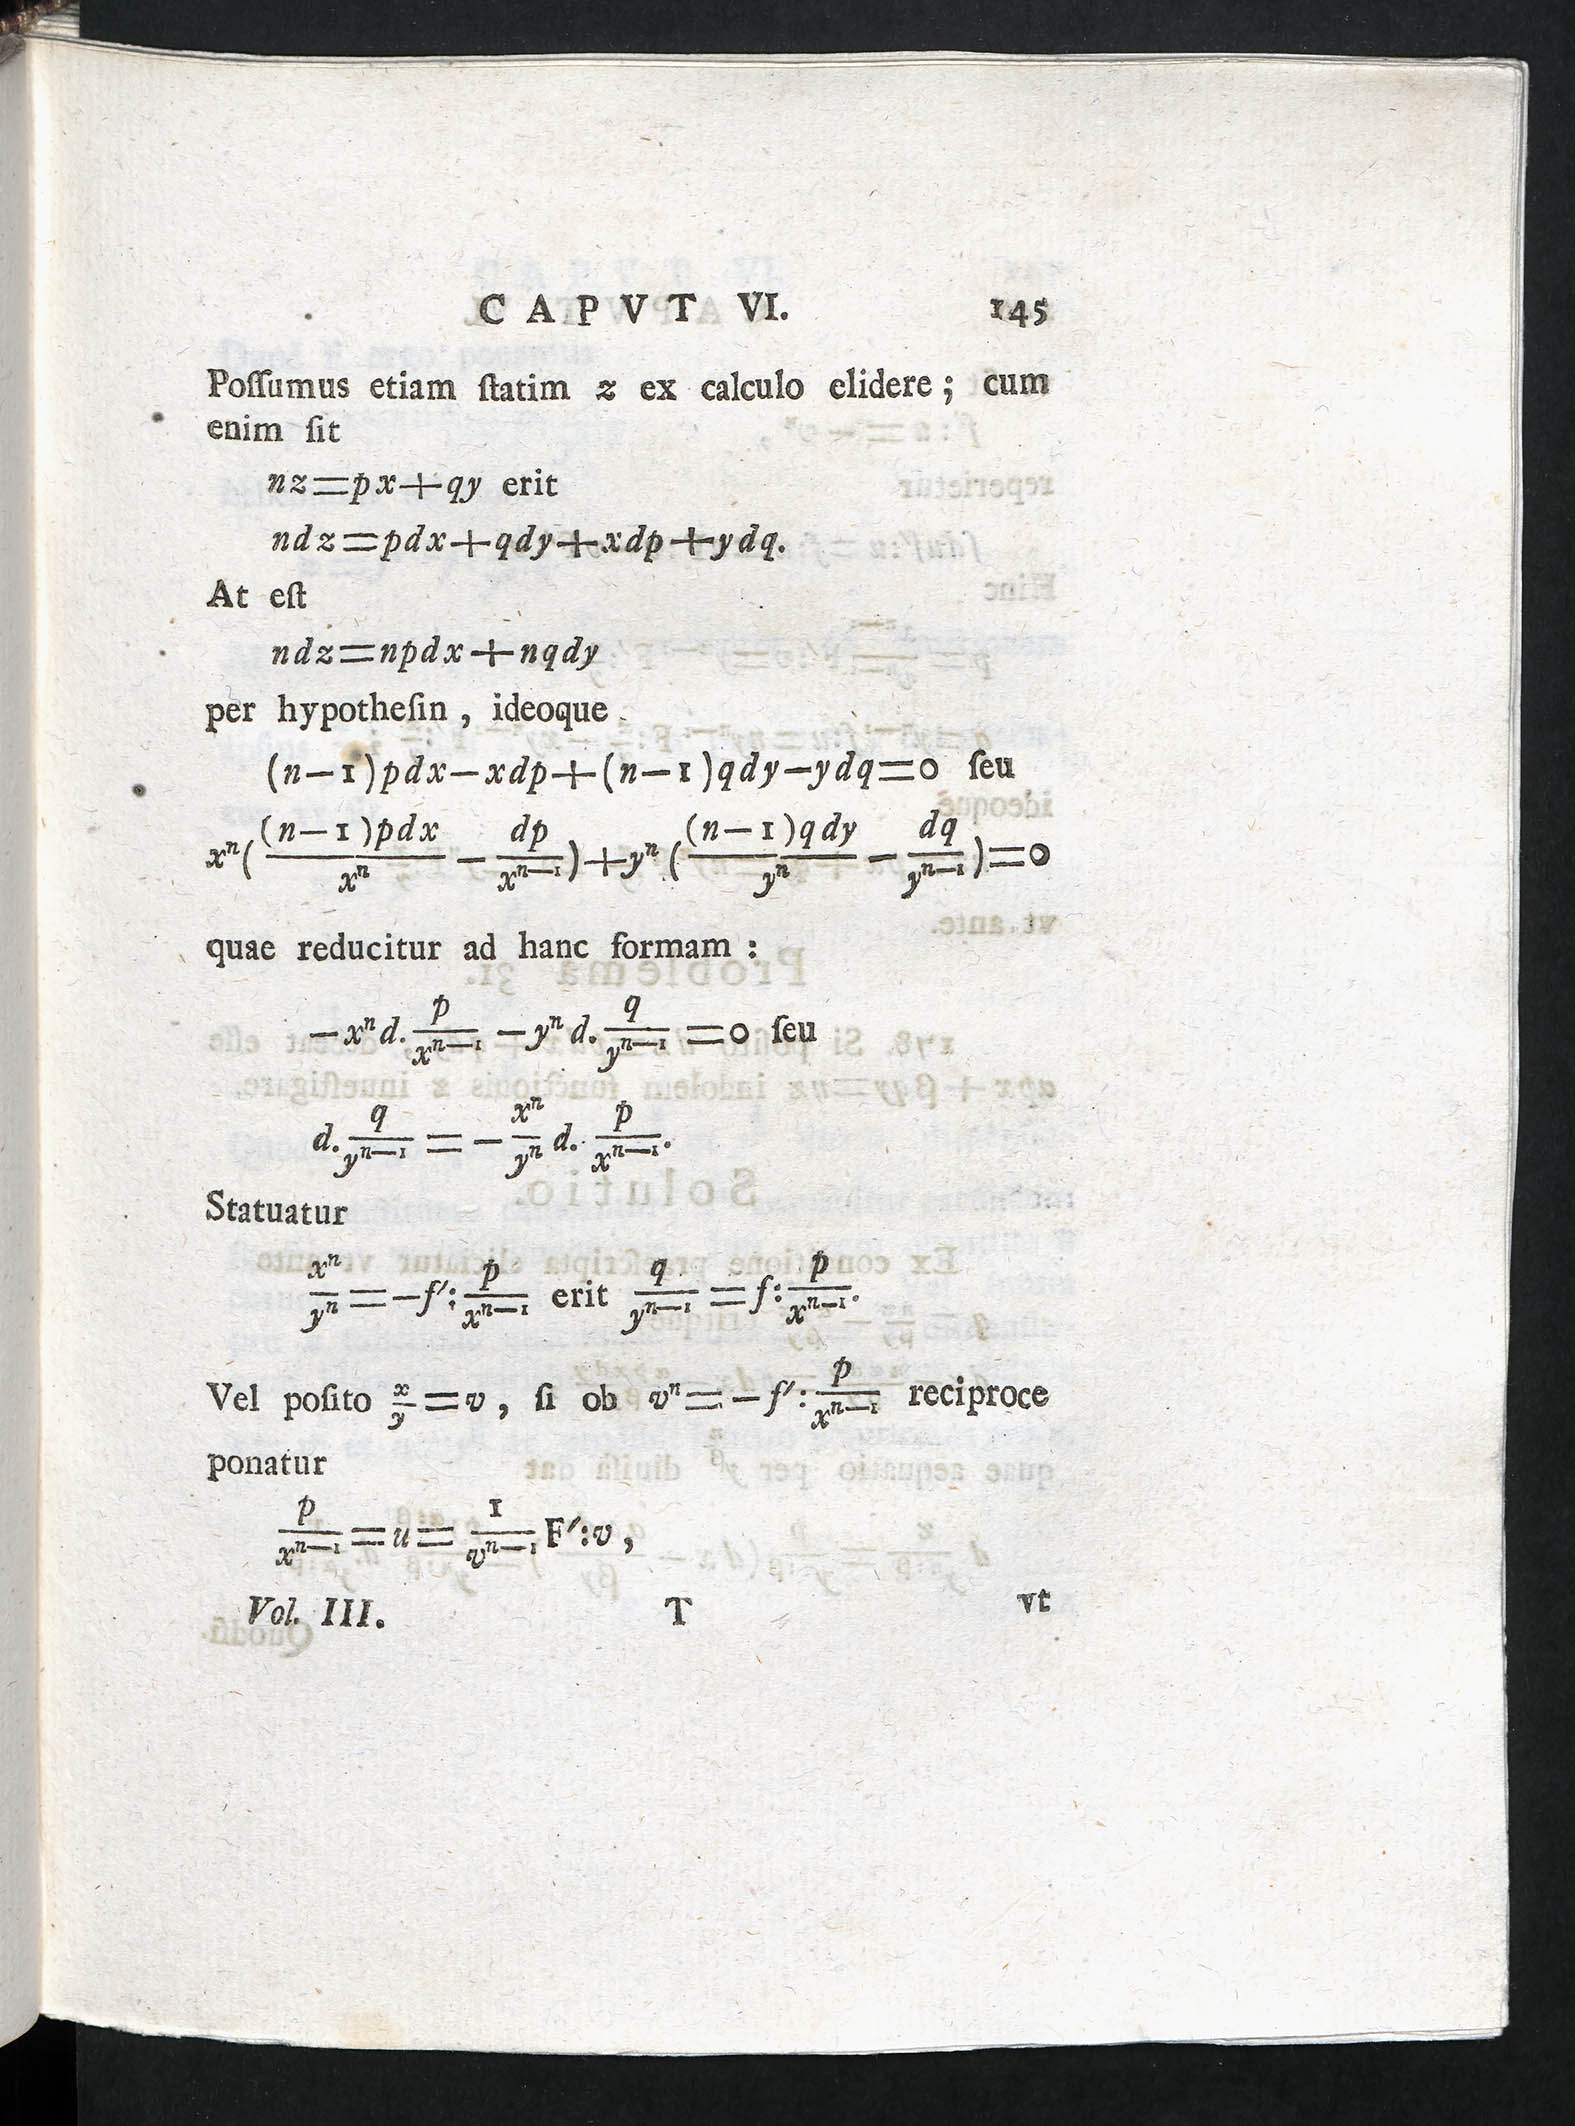 CAPVT VI. 145
Poſſumus etiam ſtatim z ex calculo elidere; cum
enim ſit
nz=px+qy erit
ndz=pdx+qdy+xdp+ydq.
At eſt
ndz=npdx+nqdy
per hypotheſin, ideoque
(n-1)pdx-xdp+(n-1)qdy-ydq=0 ſeu
x^n((n-1)pdx/x^n - dp/x^{n-1})+y^n((n-1)qdy/y^n - dq/y^{n-1})=0
quae reducitur ad hanc formam:
-x^n d. p/x^{n-1} - y^n d. q/y^{n-1} =0 ſeu
d. q/y^{n-1} = - x^n/y^n d. p/x^{n-1}.
Statuatur
x^n/y^n = -f′: p/x^{n-1} erit q/y^{n-1} = f: p/x^{n-1}.
Vel poſito x/y = v, ſi ob v^n = -f′: p/x^{n-1} reciproce
ponatur
p/x^{n-1} = u = 1/v^{n-1} F′:v,
Vol. III. T vt